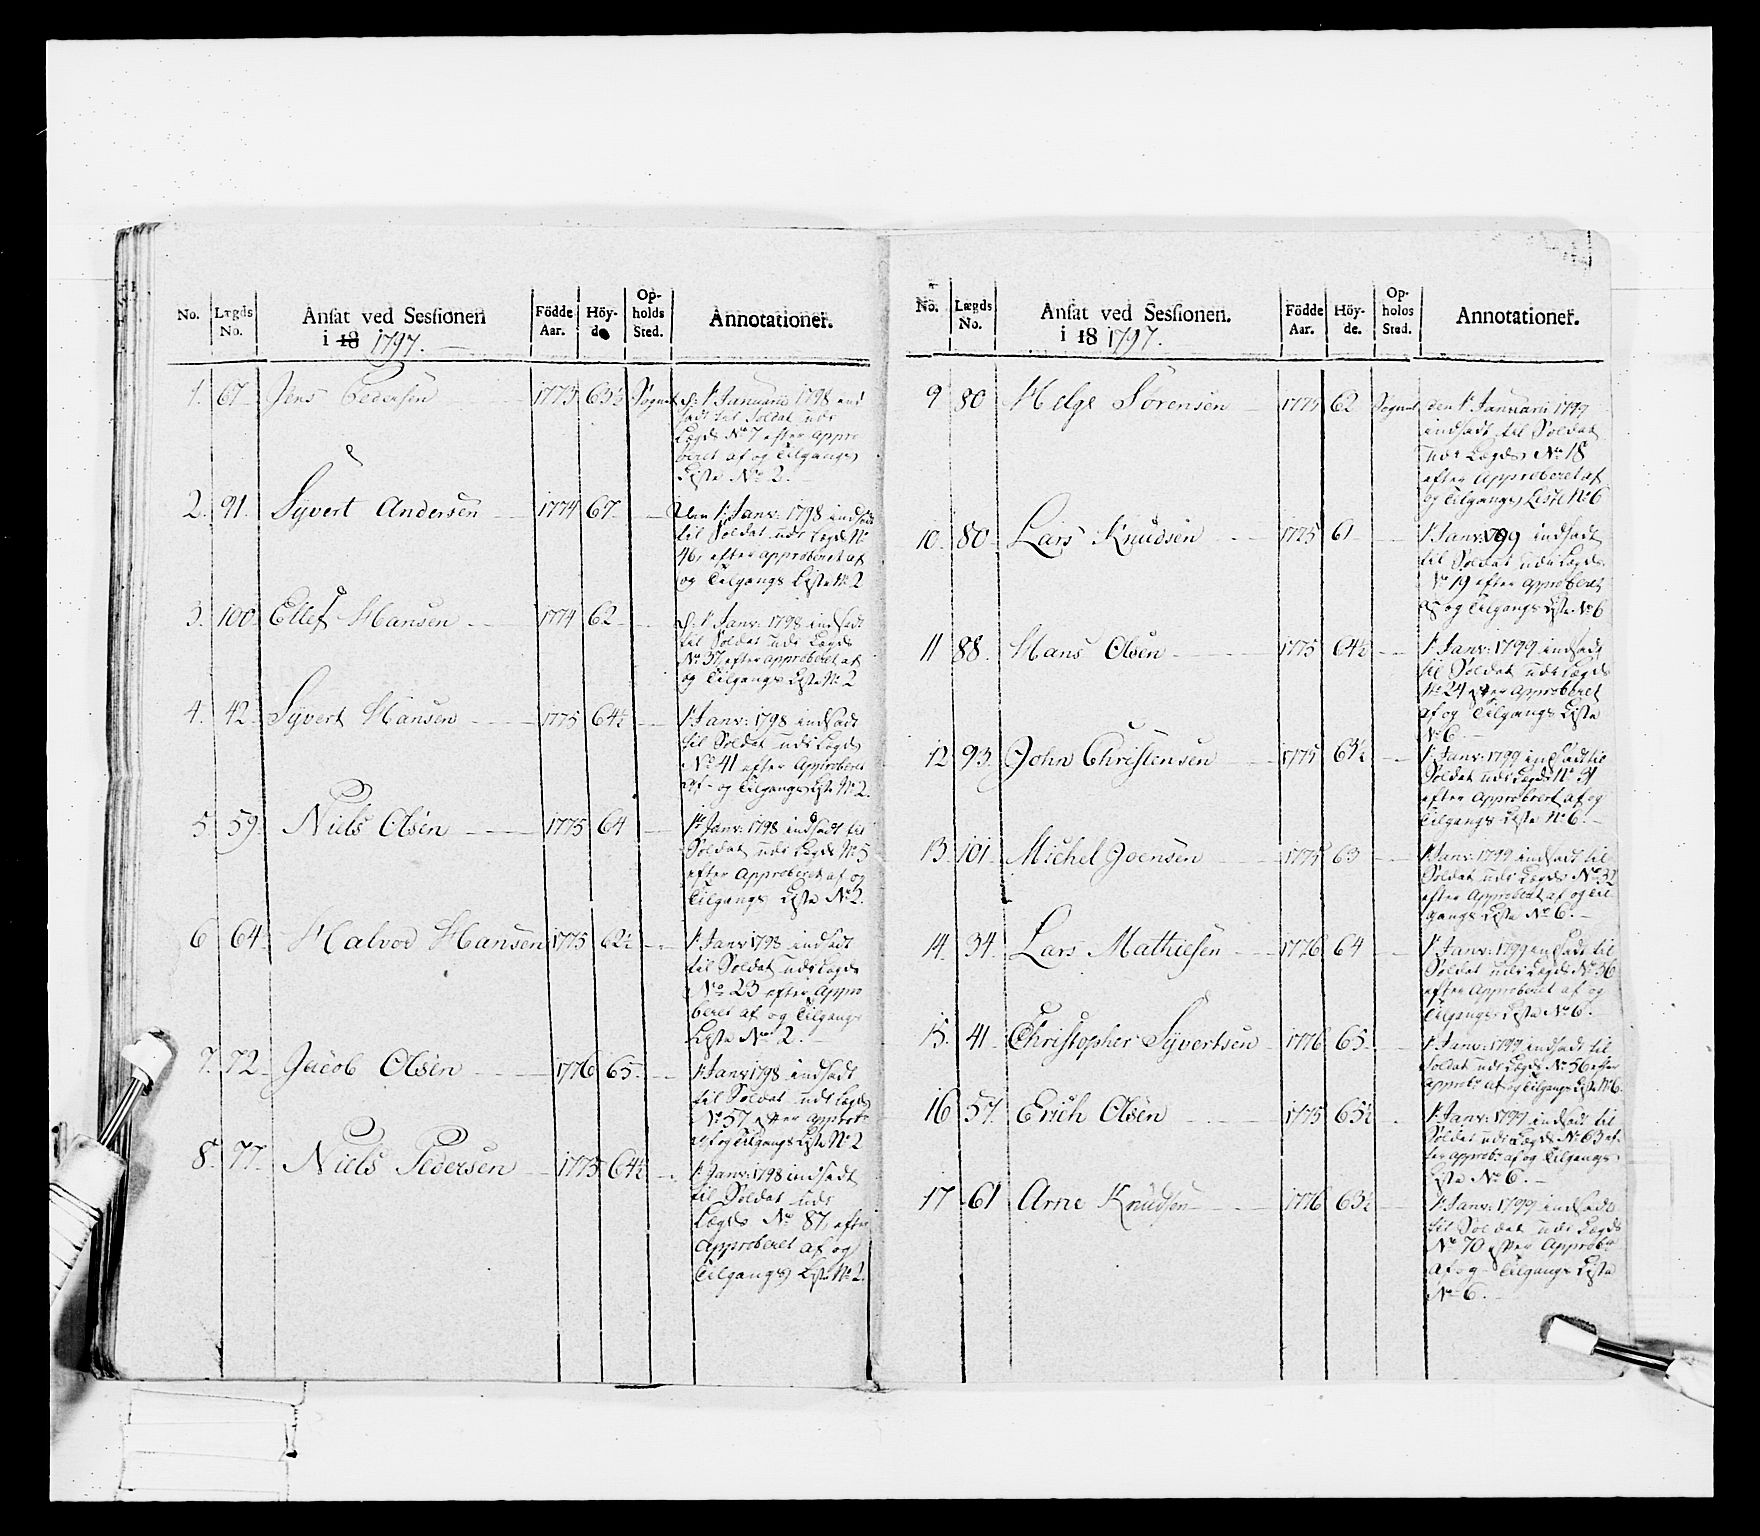 No. Lægds No. Ansat ved Sessionen i 18 1797. Födde Aar. Höyde. Opholds Sted. Annotationer.
1. 67. Jens Pedersen 1775 63½ Sognet d: 1t Januarii 1798 ind
sadt til Soldat udi
Lægds No 7 efter Appro
beret af og Tilgangs
Liste No 2.
2. 91. Syvert Andersen 1774 67. Den 1t Janv: 1798 indsadt
til Soldat udi Lægd No
46, efter approberet af
og Tilgangs Liste No 2
3. 100 Ellef Hansen 1774 62 d: 1t Janv: 1798 indsadt
til Soldat udi Lægds
No 37, efter approberet af
og Tilgangs Liste No 2
4. 42. Syvert Hansen 1775 64½ 1t Janv: 1798 indsadt
til Soldat udi Lægds
No 41 efter Approberet
af og Tilgangs Liste No 2.
5 59. Niels Olsen 1775 64 1t Janv: 1798 indsadt til
Soldat udi Lægds No 5
efter Approberet af og
Tilgangs Liste No 2.
6 64. Halvor Hansen 1775 62½ 1t Janv 1798 indsadt
til Soldat udi Lægds
No 23 efter Appro
beret af og Tilgangs
Liste No 2.
7. 72. Jacob Olsen 1776 65. 1t Janv 1798 indsadt
til Soldat udi Lægds
No 57 efter approb:
af og Tilgangs Liste No 2
8. 77. Niels Pedersen 1775 64½ 1t Janv: 1798 indsadt
til Soldat udi
Lægds No 87, efter
Approberet af og
Tilgangs Liste No 2.
No. Lægds No. Ansat ved Sessionen. i 18 1797. Födde Aar. Höyde. Opholds Sted. Annotationer.
9 80 Helge Sørensen 1775 62 Sognet den 1t Januarii 1799
indsadt til Soldat
udi Lægds No 18
efter Approberet af
og Tilgangs Liste No 6
10. 80. Lars Knudsen 1775 61 1t Janv: 1799 indsadt
til Soldat udi Lægds
No 19 efter Approberet
af og Tilgangs Liste No 6
11 88. Hans Olsen 1775 64½ 1t Janv: 1799 indsadt
til Soldat udi Lægds
No 24 efter Approberet
af og Tilgangs Liste
No 6.
12 93. John Christensen 1775 63½ 1t Janv: 1799 indsadt til
Soldat udi Lægds No 31
efter Approberet af og
Tilgangs Liste No 6.
13. 101. Michel Joensen 1775 63 1t Janv: 1799 indsadt til
Soldat udi Lægds No 32
efter Approberet af og Til
gangs Liste No 6.
14. 34. Lars Mathiesen 1776 64 1t Janv: 1799 indsadt til
Soldat udi Lægds No 36
efter Approberet af og
Tilgangs Liste No 6.
15. 41 Christopher Syvertsen 1776 65. 1t Janv: 1799 indsadt til
Soldat udi Lægds No 56 efter
approb: af og Tilgangs Liste No 6.
16 57. Erich Olsen 1775 65½ 1t Janv: 1799 indsadt til
Soldat udi Lægds No 63 ef
ter approb: af og Tilgangs
Liste No 6.
17 61 Arne Knudsen 1776 63½ 1t Janv: 1799 indsadt
til Soldat udi Lægds
No 70 efter Approb:
af og Tilgangs Liste
No 6.